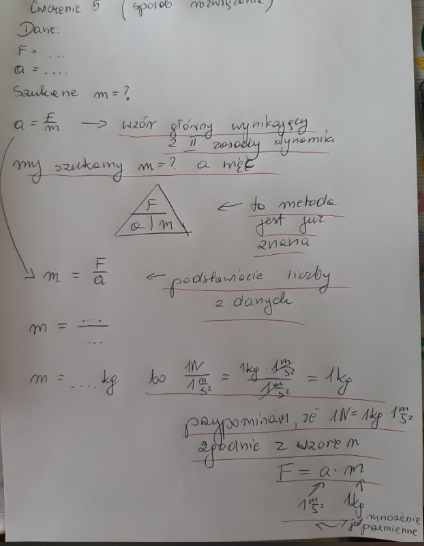 Ćwiczenie 5 (sposób rozwiązania)
Dane:
F = ....
a = ....
Szukane m = ?
a = F/m → wzór główny wynikający
z II zasady dynamiki
my szukamy m = ? a więc
F
a | m
← ta metoda
jest już
znana
m = F/a ← podstawiacie liczby
z danych
m = ..../....
m = .... kg bo 1N/(1 m/s²) = (1kg · 1 m/s²)/(1 m/s²) = 1kg
przypominam, że 1N = 1kg · 1 m/s²
zgodnie z wzorem
F = a · m
1 m/s² · 1kg
mnożenie
jest przemienne